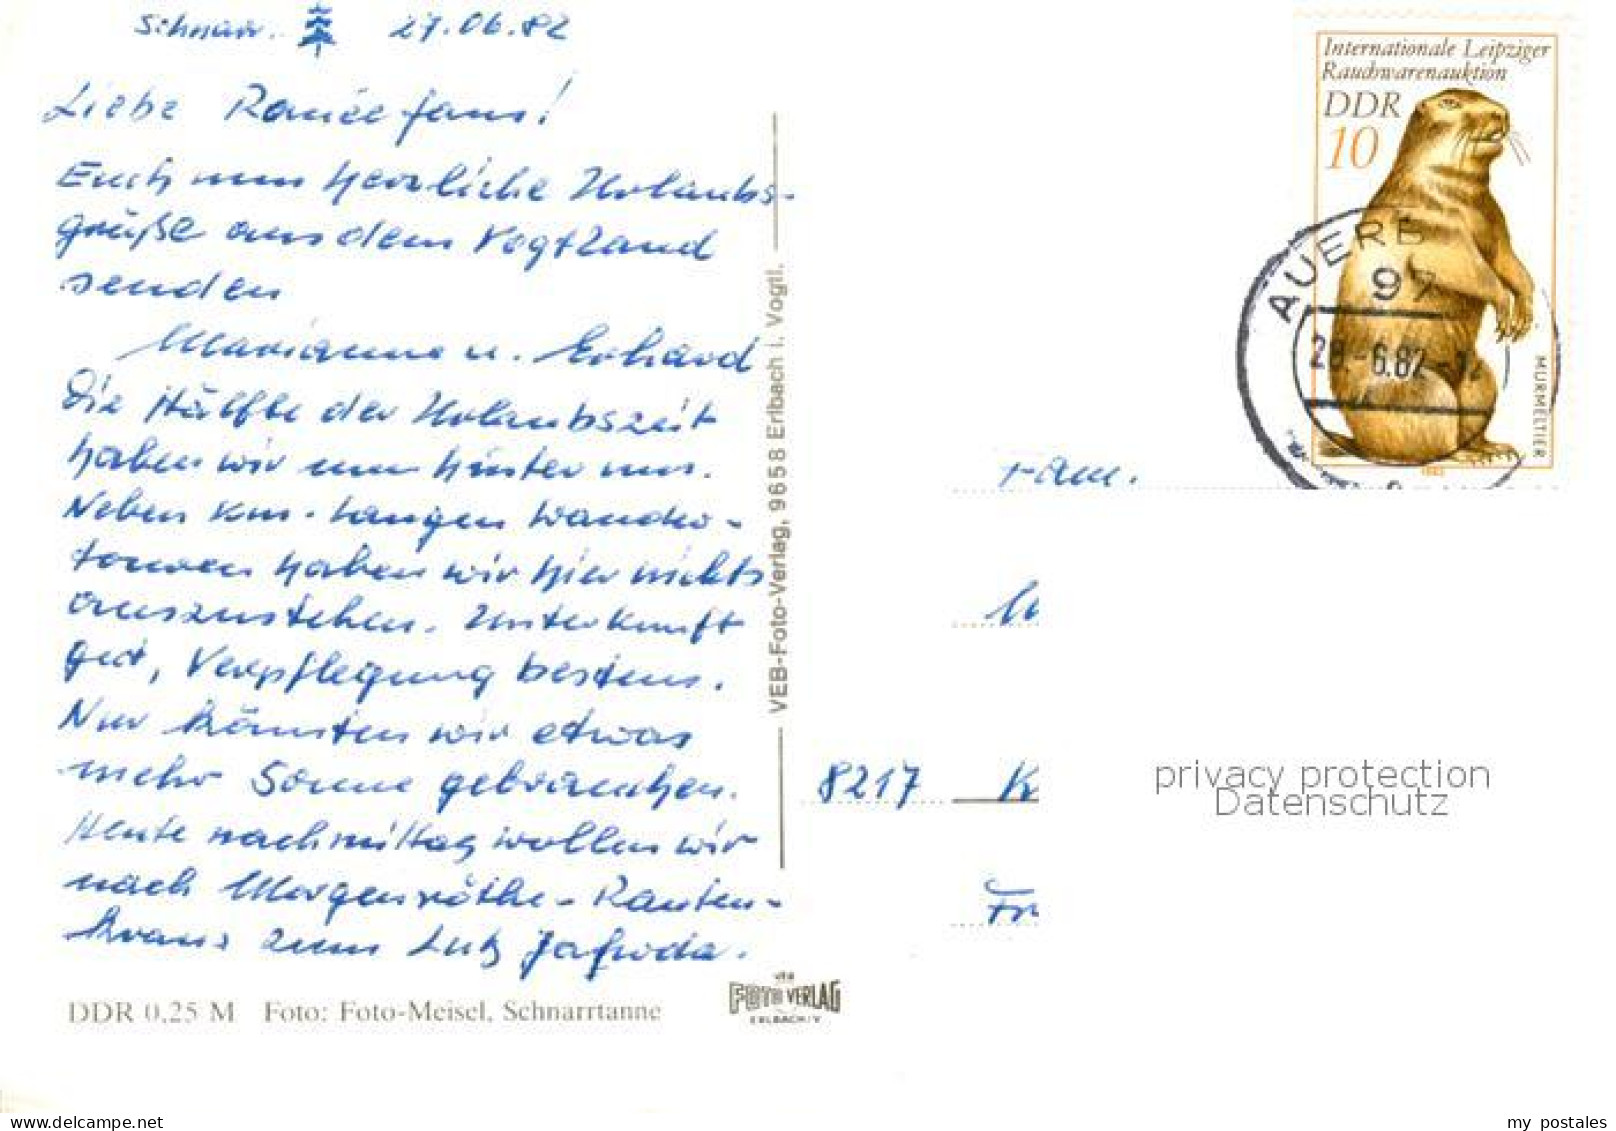 Schnarr. 27.06.82
Liebe Ranée fans!
Euch nun herzliche Urlaubs-
grüße aus dem Vogtland
senden
Marianne u. Erhard
Die Hälfte der Urlaubszeit
haben wir nun hinter uns.
Neben km-langen Wander-
touren haben wir hier nichts
auszustehen. Unterkunft
gut, Verpflegung bestens.
Nur könnten wir etwas
mehr Sonne gebrauchen.
Heute nachmittag wollen wir
nach Morgenröthe-Rauten-
kranz zum Lutz Jahoda.
DDR 0,25 M Foto: Foto-Meisel, Schnarrtanne
VEB-Foto-Verlag, 9658 Erlbach i. Vogtl.
VEB
FOTO VERLAG
ERLBACH/V
Internationale Leipziger
Rauchwarenauktion
DDR
10
MURMELTIER
1982
AUERB
97
28.-6.82-12
Fam.
8217 K
Fr
privacy protection
Datenschutz
my postales